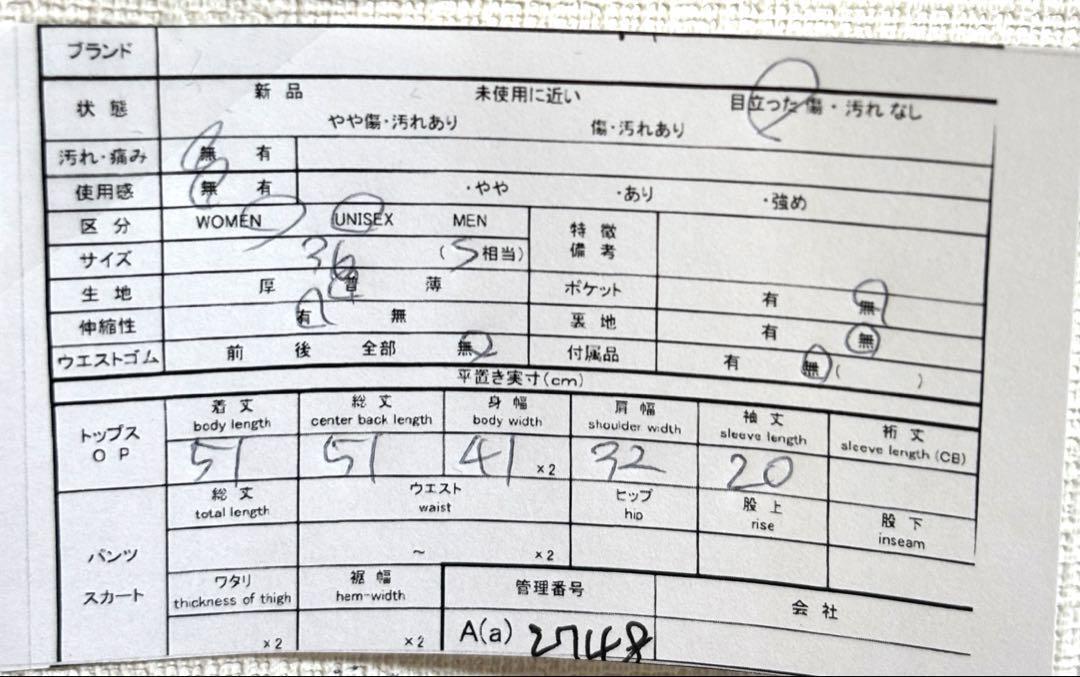 ブランド
状態 新品 未使用に近い 目立った傷・汚れなし
やや傷・汚れあり 傷・汚れあり
汚れ・痛み 無 有
使用感 無 有 ・やや ・あり ・強め
区分 WOMEN UNISEX MEN 特徴備考
サイズ 36 (S相当)
生地 厚 普 薄 ポケット 有 無
伸縮性 有 無 裏地 有 無
ウエストゴム 前 後 全部 無 付属品 有 無( )
平置き実寸(cm)
トップス OP 着丈 総丈 身幅 肩幅 袖丈 裄丈
body length center back length body width shoulder width sleeve length sleeve length (CB)
51 51 41 ×2 32 20
パンツ スカート 総丈 ウエスト ヒップ 股上 股下
total length waist hip rise inseam
～ ×2
ワタリ 裾幅 管理番号 会社
thickness of thigh hem-width
×2 ×2 A(a) 2748